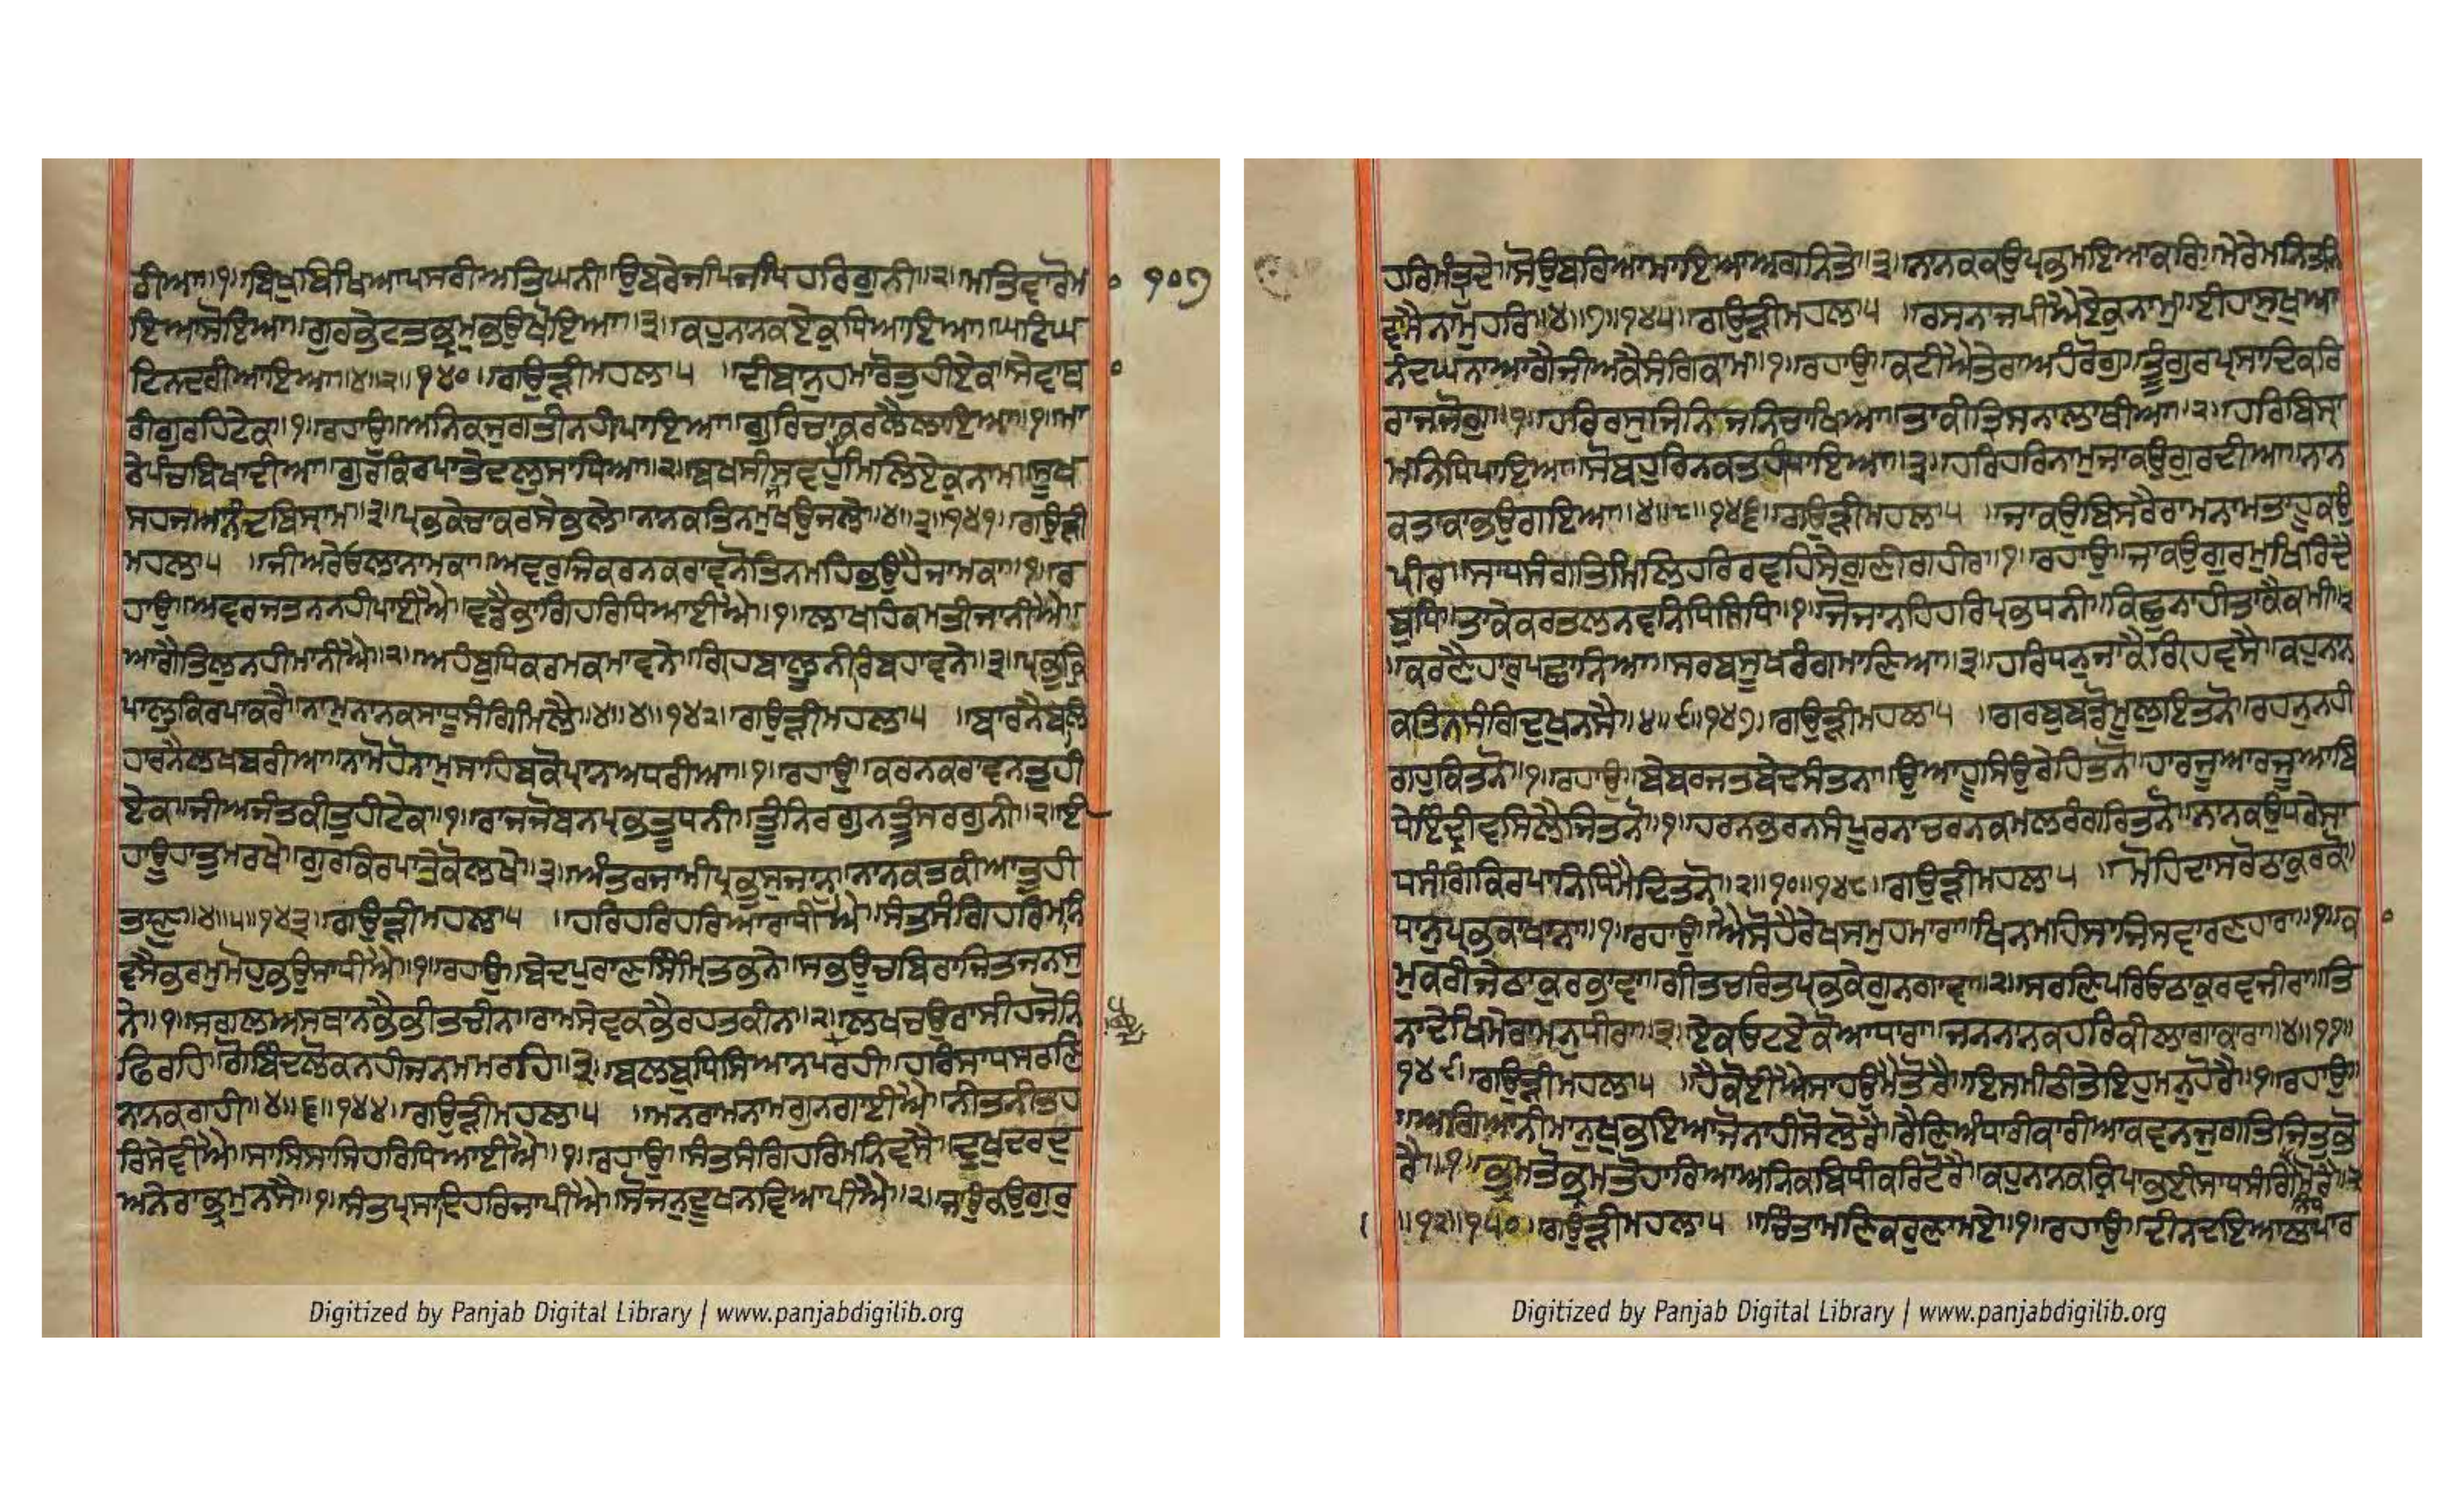 ਰੀਆ॥੧॥ਬਿਖੁਬਿਖਿਆਪਸਰੀਅਤਿਘਨੀ॥ਉਬਰੇਜਪਿਜਪਿਹਰਿਗੁਨੀ॥੨॥ਮਤਿਵਾਰੋਮਾ
ਇਆਸੋਇਆ॥ਗੁਰਭੇਟਤਭ੍ਰਮੁਭਉਖੋਇਆ॥੩॥ਕਹੁਨਾਨਕਏਕੁਧਿਆਇਆ॥ਘਟਿਘ
ਟਿਨਦਰੀਆਇਆ॥੪॥੨॥੧੪੦॥ਗਉੜੀਮਹਲਾ੫ ॥ਦੀਬਾਨੁਹਮਾਰੋਤੁਹੀਏਕ॥ਸੇਵਾਥਾ
ਰੀਗੁਰਹਿਟੇਕ॥੧॥ਰਹਾਉ॥ਅਨਿਕਜੁਗਤੀਨਹੀਪਾਇਆ॥ਗੁਰਿਚਾਕਰਲੈਲਾਇਆ॥੧॥ਮਾ
ਰੇਪੰਚਬਿਖਾਦੀਆ॥ਗੁਰਕਿਰਪਾਤੇਦਲੁਸਾਧਿਆ॥੨॥ਬਖਸੀਸਵਜਹੁਮਿਲਿਏਕੁਨਾਮ॥ਸੂਖ
ਸਹਜਆਨੰਦਬਿਸ੍ਰਾਮ॥੩॥ਪ੍ਰਭਕੇਚਾਕਰਸੇਭਲੇ॥ਨਾਨਕਤਿਨਮੁਖਊਜਲੇ॥੪॥੩॥੧੪੧॥ਗਉੜੀ
ਮਹਲਾ੫ ॥ਜੀਅਰੇਓਲ੍ਹਾਨਾਮਕਾ॥ਅਵਰੁਜਿਕਰਨਕਰਾਵਨੋਤਿਨਮਹਿਭਉਹੈਜਾਮਕਾ॥੧॥ਰ
ਹਾਉ॥ਅਵਰਜਤਨਨਹੀਪਾਈਐ॥ਵਡੈਭਾਗਿਹਰਿਧਿਆਈਐ॥੧॥ਲਾਖਹਿਕਮਤੀਜਾਨੀਐ॥
ਆਗੈਤਿਲੁਨਹੀਮਾਨੀਐ॥੨॥ਅਹੰਬੁਧਿਕਰਮਕਮਾਵਨੇ॥ਗ੍ਰਿਹਬਾਲੂਨੀਰਿਬਹਾਵਨੇ॥੩॥ਪ੍ਰਭੁਕ੍ਰਿ
ਪਾਲੁਕਿਰਪਾਕਰੈ॥ਨਾਮੁਨਾਨਕਸਾਧੂਸੰਗਿਮਿਲੈ॥੪॥੪॥੧੪੨॥ਗਉੜੀਮਹਲਾ੫ ॥ਬਾਰਨੈਬਲਿ
ਹਾਰਨੈਲਖਬਰੀਆ॥ਨਾਮੋਹੋਨਾਮੁਸਾਹਿਬਕੋਪ੍ਰਾਨਅਧਰੀਆ॥੧॥ਰਹਾਉ॥ਕਰਨਕਰਾਵਨਤੁਹੀ
ਏਕ॥ਜੀਅਜੰਤਕੀਤੁਹੀਟੇਕ॥੧॥ਰਾਜਜੋਬਨਪ੍ਰਭਤੂਧਨੀ॥ਤੂੰਨਿਰਗੁਨਤੂੰਸਰਗੁਨੀ॥੨॥ਈ
ਹਾਊਹਾਤੁਮਰਖੇ॥ਗੁਰਕਿਰਪਾਤੇਕੋਲਖੇ॥੩॥ਅੰਤਰਜਾਮੀਪ੍ਰਭਸੁਜਾਨੁ॥ਨਾਨਕਤਕੀਆਤੁਹੀ
ਤਾਣੁ॥੪॥੫॥੧੪੩॥ਗਉੜੀਮਹਲਾ੫ ॥ਹਰਿਹਰਿਹਰਿਆਰਾਧੀਐ॥ਸੰਤਸੰਗਿਹਰਿਮਨਿ
ਵਸੈਭਰਮੁਮੋਹੁਭਉਸਾਧੀਐ॥੧॥ਰਹਾਉ॥ਬੇਦਪੁਰਾਣਸਿੰਮ੍ਰਿਤਿਭਨੇ॥ਸਭਊਚਬਿਰਾਜਿਤਜਨਸੁ
ਨੇ॥੧॥ਸਗਲਅਸਥਾਨਭੈਭੀਤਚੀਨ॥ਰਾਮਸੇਵਕਭੈਰਹਤਕੀਨ॥੨॥ਲਖਚਉਰਾਸੀਹਜੋਨਿ
ਫਿਰਹਿ॥ਗੋਬਿੰਦਲੋਕਨਹੀਜਨਮਿਮਰਹਿ॥੩॥ਬਲਬੁਧਿਸਿਆਨਪਰਹੀ॥ਹਰਿਸਾਧਸਰਣਿ
ਨਾਨਕਗਹੀ॥੪॥੬॥੧੪੪॥ਗਉੜੀਮਹਲਾ੫ ॥ਮਨਰਾਮਨਾਮਗੁਨਗਾਈਐ॥ਨੀਤਨੀਤਹ
ਰਿਸੇਵੀਐ॥ਸਾਸਿਸਾਸਿਹਰਿਧਿਆਈਐ॥੧॥ਰਹਾਉ॥ਸੰਤਸੰਗਿਹਰਿਮਨਿਵਸੈ॥ਦੂਖੁਦਰਦੁ
ਅਨੇਰਾਭ੍ਰਮੁਨਸੈ॥੧॥ਸੰਤਪ੍ਰਸਾਦਿਹਰਿਜਾਪੀਐ॥ਸੋਜਨੁਦੂਖਨਵਿਆਪੀਐ॥੨॥ਜਾਕਉਗੁਰੁ
੧੦੭
ਹਰਿਮੰਤ੍ਰਦੇ॥ਸੋਉਬਰਿਆਮਾਇਆਅਗਨਿਤੇ॥੩॥ਨਾਨਕਕਉਪ੍ਰਭਮਇਆਕਰਿ॥ਮੇਰੇਮਨਿਤਨਿ
ਵਸੈਨਾਮੁਹਰਿ॥੪॥੭॥੧੪੫॥ਗਉੜੀਮਹਲਾ੫ ॥ਰਸਨਾਜਪੀਐਏਕੁਨਾਮੁ॥ਈਹਾਸੁਖੁਆ
ਨੰਦਘਨਾਆਗੈਜੀਅਕੈਸੰਗਿਕਾਮ॥੧॥ਰਹਾਉ॥ਕਟੀਐਤੇਰਾਅਹੰਰੋਗੁ॥ਤੂੰਗੁਰਪ੍ਰਸਾਦਿਕਰਿ
ਰਾਜਜੋਗੁ॥੧॥ਹਰਿਰਸੁਜਿਨਿਜਨਿਚਾਖਿਆ॥ਤਾਕੀਤ੍ਰਿਸਨਾਲਾਥੀਆ॥੨॥ਹਰਿਬਿਸ੍ਰਾ
ਮਨਿਧਿਪਾਇਆ॥ਸੋਬਹੁਰਿਨਕਤਹੀਧਾਇਆ॥੩॥ਹਰਿਹਰਿਨਾਮੁਜਾਕਉਗੁਰਿਦੀਆ॥ਨਾਨ
ਕਤਾਕਾਭਉਗਇਆ॥੪॥੮॥੧੪੬॥ਗਉੜੀਮਹਲਾ੫ ॥ਜਾਕਉਬਿਸਰੈਰਾਮਨਾਮਤਾਹੂਕਉ
ਪੀਰ॥ਸਾਧਸੰਗਤਿਮਿਲਿਹਰਿਰਵਹਿਸੇਗੁਣੀਗਹੀਰ॥੧॥ਰਹਾਉ॥ਜਾਕਉਗੁਰਮੁਖਿਰਿਦੈ
ਬੁਧਿ॥ਤਾਕੇਕਰਤਲਨਵਨਿਧਿਸਿਧਿ॥੧॥ਜੋਜਾਨਹਿਹਰਿਪ੍ਰਭਧਨੀ॥ਕਿਛੁਨਾਹੀਤਾਕੈਕਮੀ॥੨
॥ਕਰਣੈਹਾਰੁਪਛਾਨਿਆ॥ਸਰਬਸੂਖਰੰਗਮਾਣਿਆ॥੩॥ਹਰਿਧਨੁਜਾਕੈਗ੍ਰਿਹਿਵਸੈ॥ਕਹੁਨਾਨ
ਕਤਿਨਸੰਗਿਦੁਖੁਨਸੈ॥੪॥੯॥੧੪੭॥ਗਉੜੀਮਹਲਾ੫ ॥ਗਰਬੁਬਡੋਮੂਲੁਇਤਨੋ॥ਰਹਨੁਨਹੀ
ਗਹੁਕਿਤਨੋ॥੧॥ਰਹਾਉ॥ਬੇਬਰਜਤਬੇਦਸੰਤਨਾ॥ਉਆਹੂਸਿਉਰੇਹਿਤਨੋ॥ਹਾਰਜੂਆਰਜੂਆਬਿ
ਧੇਇੰਦ੍ਰੀਵਸਿਲੈਜਿਤਨੋ॥੧॥ਹਰਨਭਰਨਸੰਪੂਰਨਾਚਰਨਕਮਲਰੰਗਰਿਤਨੋ॥ਨਾਨਕਉਧਰੇਸਾ
ਧਸੰਗਿਕਿਰਪਾਨਿਧਿਮੈਦਿਤਨੋ॥੨॥੧੦॥੧੪੮॥ਗਉੜੀਮਹਲਾ੫ ॥ਮੋਹਿਦਾਸਰੋਠਾਕੁਰਕੋ॥
ਧਾਨੁਪ੍ਰਭਕਾਖਾਨਾ॥੧॥ਰਹਾਉ॥ਐਸੋਹੈਰੇਖਸਮੁਹਮਾਰਾ॥ਖਿਨਮਹਿਸਾਜਿਸਵਾਰਣਹਾਰਾ॥੧॥ਕਾ
ਮੁਕਰੀਜੇਠਾਕੁਰਭਾਵਾ॥ਗੀਤਚਰਿਤਪ੍ਰਭਕੇਗੁਨਗਾਵਾ॥੨॥ਸਰਣਿਪਰਿਓਠਾਕੁਰਵਜੀਰਾ॥ਤਿ
ਨਾਦੇਖਿਮੇਰਾਮਨੁਧੀਰਾ॥੩॥ਏਕਓਟਏਕੋਆਧਾਰਾ॥ਜਨਨਾਨਕਹਰਿਕੀਲਾਗਾਕਾਰਾ॥੪॥੧੧॥
੧੪੯॥ਗਉੜੀਮਹਲਾ੫ ॥ਹੈਕੋਈਐਸਾਹਉਮੈਤੋਰੈ॥ਇਸੁਮੀਠੀਤੇਇਹੁਮਨੁਹੋਰੈ॥੧॥ਰਹਾਉ॥
ਅਗਿਆਨੀਮਾਨੁਖੁਭਇਆਜੋਨਾਹੀਸੋਲੋਰੈ॥ਰੈਣਿਅੰਧਾਰੀਕਾਰੀਆਕਵਨਜੁਗਤਿਜਿਤੁਭੋ
ਰੈ॥੧॥ਭ੍ਰਮਤੋਭ੍ਰਮਤੋਹਾਰਿਆਅਨਿਕਬਿਧੀਕਰਿਟੋਰੈ॥ਕਹੁਨਾਨਕਕਿਰਪਾਭਈਸਾਧਸੰਗਿਮੋਰੈ॥੨
॥੧੨॥੧੫੦॥ਗਉੜੀਮਹਲਾ੫ ॥ਚਿੰਤਾਮਣਿਕਰੁਣਾਮਏ॥੧॥ਰਹਾਉ॥ਦੀਨਦਇਆਲਾਪਾਰ
Digitized by Panjab Digital Library | www.panjabdigilib.org
Digitized by Panjab Digital Library | www.panjabdigilib.org